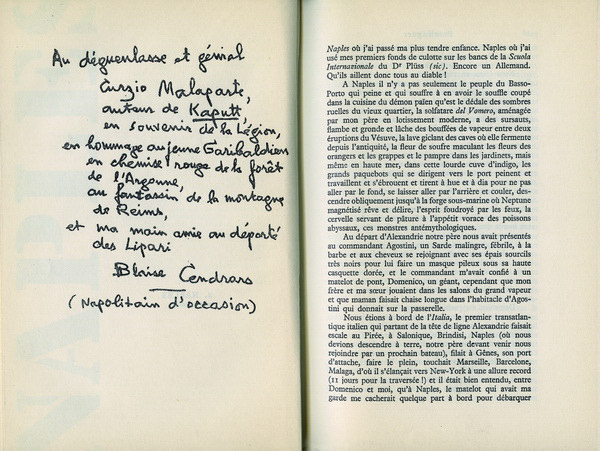 Au dégueulasse et génial
Curzio Malaparte,
auteur de Kaputt,
en souvenir de la Légion,
en hommage au jeune Garibaldien
en chemise rouge de la forêt
de l'Argonne,
au fantassin de la montagne
de Reims,
et ma main amie au déporté
des Lipari
Blaise Cendrars
(Napolitain d'occasion)
Naples où j'ai passé ma plus tendre enfance. Naples où j'ai
usé mes premiers fonds de culotte sur les bancs de la Scuola
Internazionale du Dr Plüss (sic). Encore un Allemand.
Qu'ils aillent donc tous au diable !
A Naples il n'y a pas seulement le peuple du Basso-
Porto qui peine et qui souffre à en avoir le souffle coupé
dans la cuisine du démon païen qu'est le dédale des sombres
ruelles du vieux quartier, la solfatare del Vomero, aménagée
par mon père en lotissement moderne, a des sursauts,
flambe et gronde et lâche des bouffées de vapeur entre deux
éruptions du Vésuve, la lave giclant des caves où elle fermente
depuis l'antiquité, la fleur de soufre maculant les fleurs des
orangers et les grappes et le pampre dans les jardinets, mais
même en haute mer, dans cette lourde cuve d'indigo, les
grands paquebots qui se dirigent vers le port peinent et
travaillent et s'ébrouent et tirent à hue et à dia pour ne pas
aller par le fond, se laisser aller par l'arrière et couler, des-
cendre obliquement jusqu'à la forge sous-marine où Neptune
magnétisé rêve et délire, l'esprit foudroyé par les feux, la
cervelle servant de pâture à l'appétit vorace des poissons
abyssaux, ces monstres antémythologiques.
Au départ d'Alexandrie notre père nous avait présentés
au commandant Agostini, un Sarde malingre, fébrile, à la
barbe et aux cheveux se rejoignant avec ses épais sourcils
très noirs pour lui faire un masque pileux sous sa haute
casquette dorée, et le commandant m'avait confié à un
matelot de pont, Domenico, un géant, cependant que mon
frère et ma sœur jouaient dans les salons du grand vapeur
et que maman faisait chaise longue dans l'habitacle d'Agos-
tini qui donnait sur la passerelle.
Nous étions à bord de l'Italia, le premier transatlan-
tique italien qui partant de la tête de ligne Alexandrie faisait
escale au Pirée, à Salonique, Brindisi, Naples (où nous
devions descendre à terre, notre père devant venir nous
rejoindre par un prochain bateau), filait à Gênes, son port
d'attache, faire le plein, touchait Marseille, Barcelone,
Malaga, d'où il s'élançait vers New-York à une allure record
(11 jours pour la traversée !) et il était bien entendu, entre
Domenico et moi, qu'à Naples, le matelot qui avait ma
garde me cacherait quelque part à bord pour débarquer